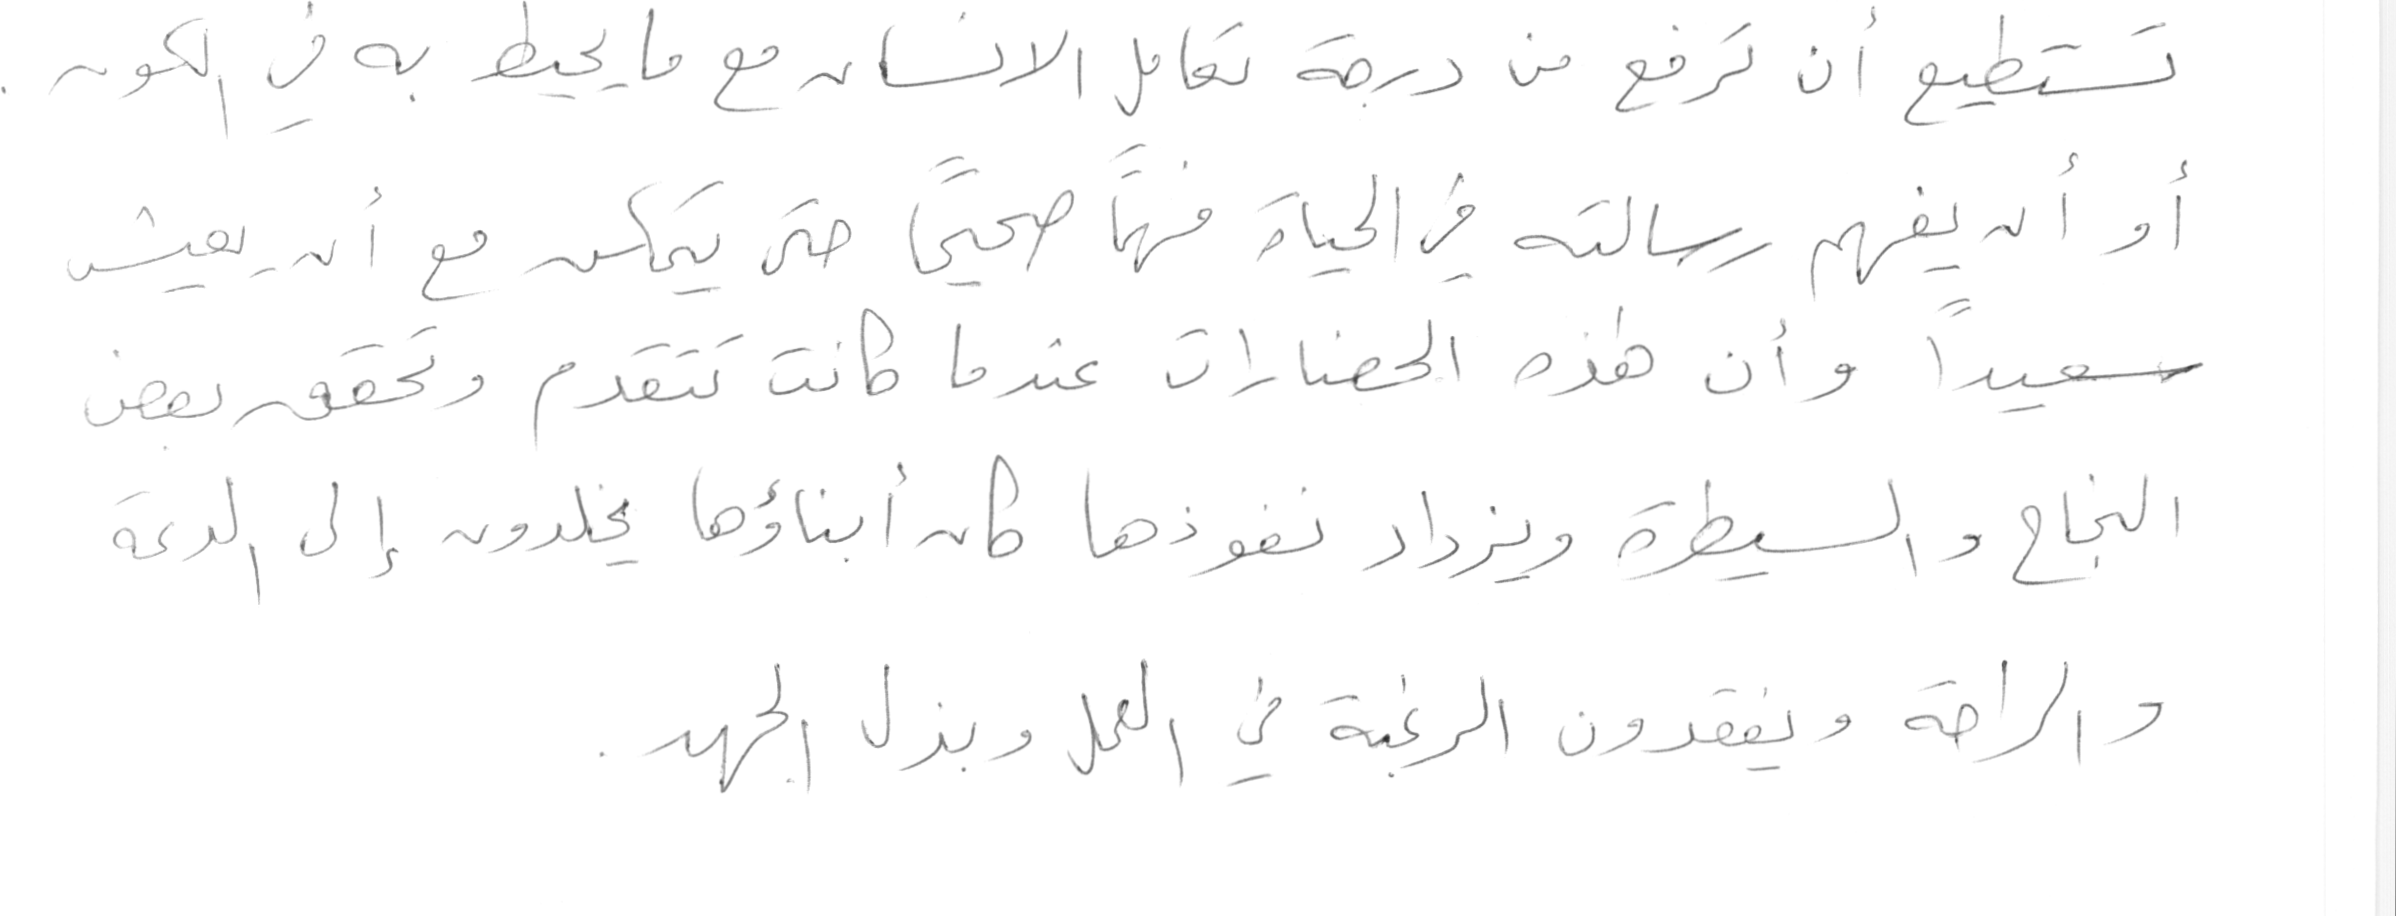 تستطيع أن ترفع من درجة تعامل الانسان مع ما يحيط به في الكون .
أو أن يفهم رسالته في الحياة فهمًا صحيحًا حتى يتمكن مع أن يعيش
سعيداً وأن هذه الحضارات عندما كانت تتقدم وتحقق بعض
النجاح والسيطرة ويزداد نفوذها كان أبناؤها يخلدون إلى الدعة
والراحة ويفقدون الرغبة في العمل وبذل الجهد .